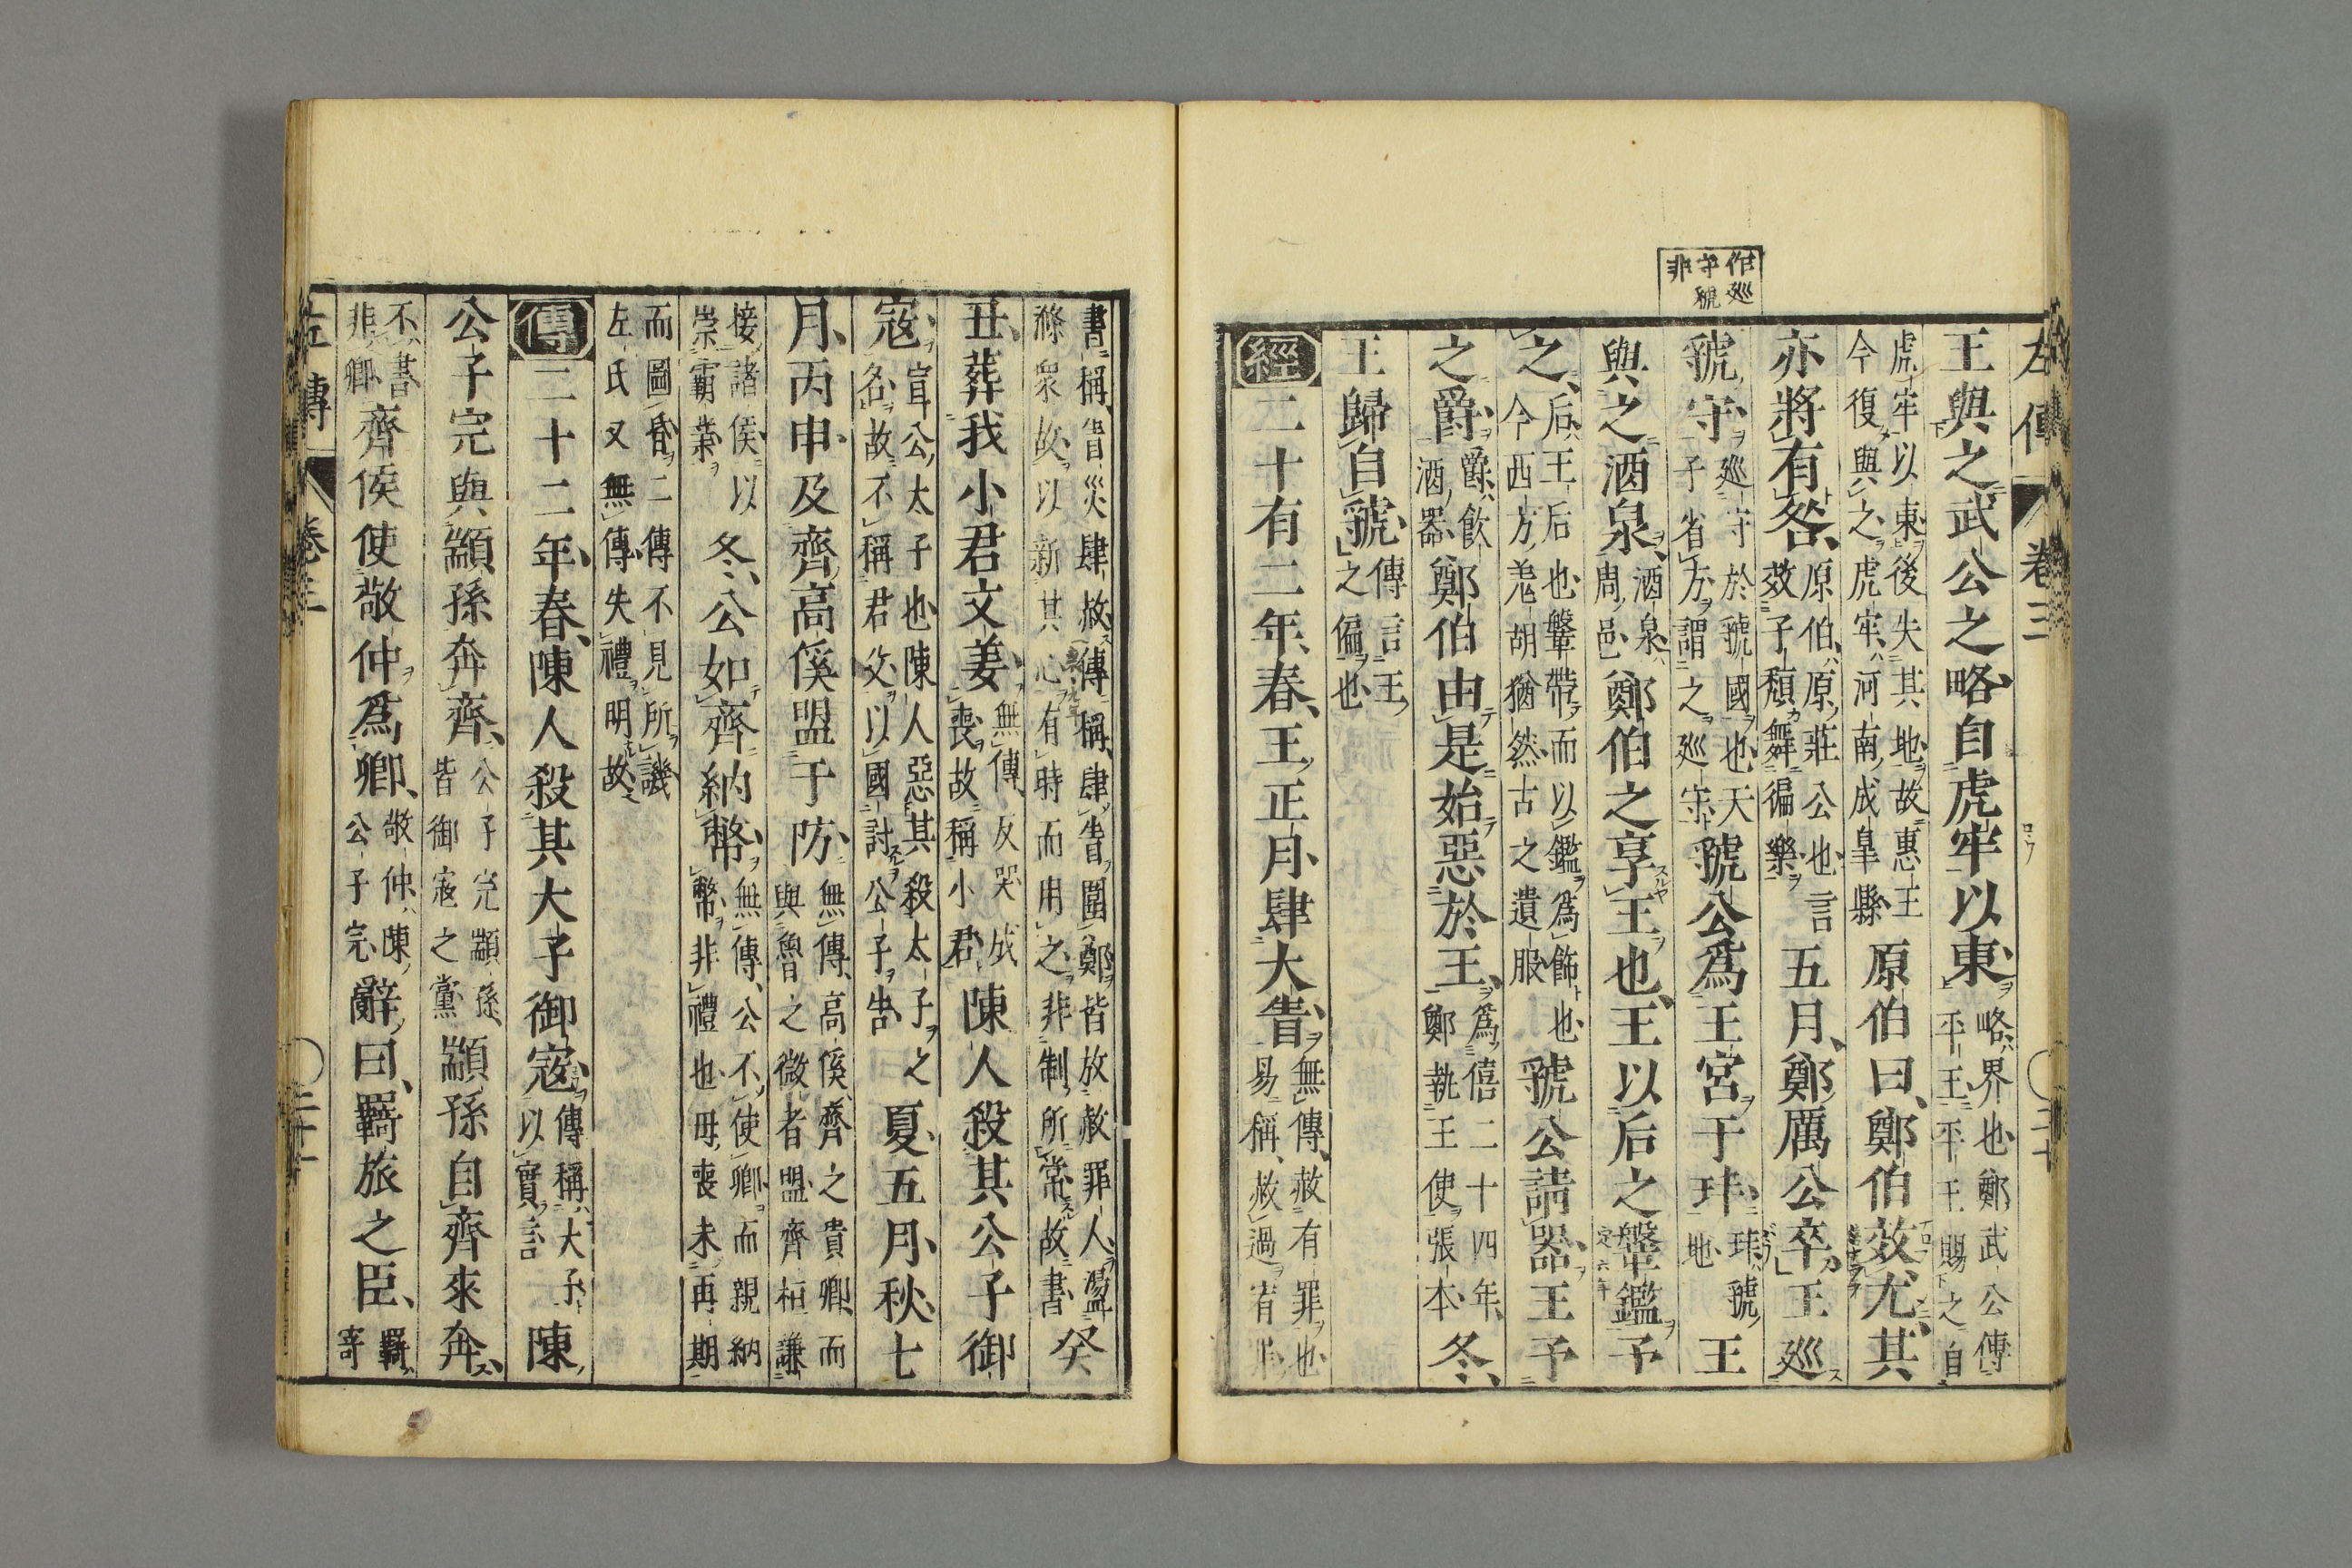 作巡
守虢
非
左傳 卷三 三十
王與之武公之略自虎牢以東略界也鄭武公傅平王平王賜之自
虎牢以東後失其地故惠王今復與之虎牢河南成皐縣原伯曰鄭伯效尤其
亦將有咎原伯原莊公也言效子頹舞徧樂五月鄭厲公卒王巡
虢守巡守於虢國也天子省方謂之巡守虢公爲王宮于玤玤虢地王
與之酒泉酒泉周邑鄭伯之享王也王以后之鞶鑑予
之后王后也鞶帶而以鑑爲飾也今西方羌胡猶然古之遺服虢公請器王予
之爵爵飲酒器鄭伯由是始惡於王爲僖二十四年鄭執王使張本冬
王歸自虢傳言王之偏也
經二十有二年春王正月肆大眚無傳赦有罪也易稱赦過宥罪
書稱眚災肆赦傳稱肆眚圍鄭皆放赦罪人盪滌衆故以新其心有時而用之非制所常故書癸
丑葬我小君文姜無傳反哭成喪故稱小君陳人殺其公子御
寇宣公太子也陳人惡其殺太子之名故不稱君父以國討公子告夏五月秋七
月丙申及齊高傒盟于防無傳高傒齊之貴卿而與魯之微者盟齊桓謙
接諸侯以崇霸業冬公如齊納幣無傳公不使卿而親納幣非禮也母喪未再期
而圖昏二傳不見所譏左氏又無傳失禮明故
傳二十二年春陳人殺其大子御寇傳稱大子以實言陳
公子完與顓孫奔齊公子完顓孫皆御寇之黨顓孫自齊來奔
不書非卿齊侯使敬仲爲卿敬仲陳公子完辭曰羈旅之臣羈寄
左傳 卷三 三十一